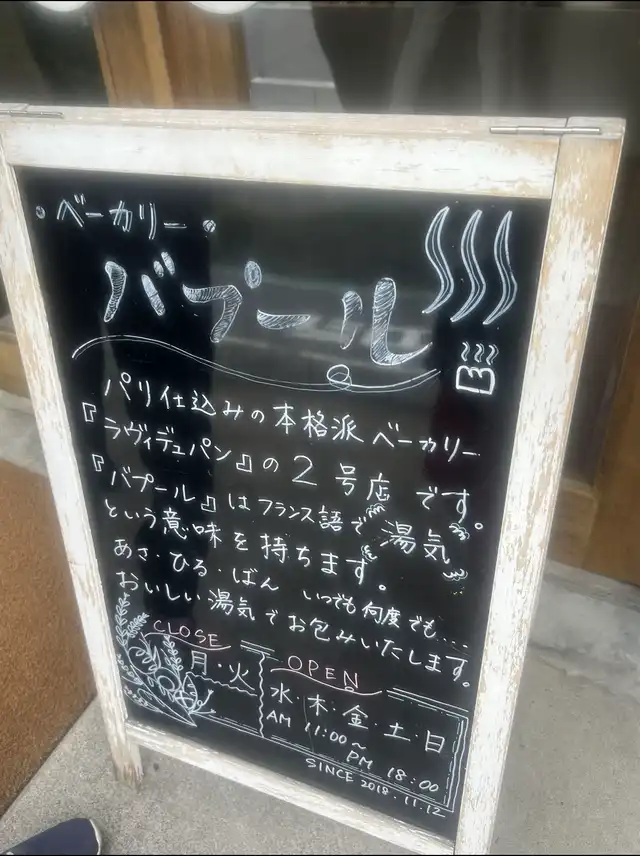 ・ベーカリー・
バプール
パリ仕込みの本格派ベーカリー
『ラヴィデュパン』の2号店です。
『バプール』はフランス語で湯気
という意味を持ちます。
あさ・ひる・ばん いつでも何度でも...
おいしい湯気でお包みいたします。
CLOSE
月・火
OPEN
水・木・金・土・日
AM 11:00～
PM 18:00
SINCE 2018.11.12